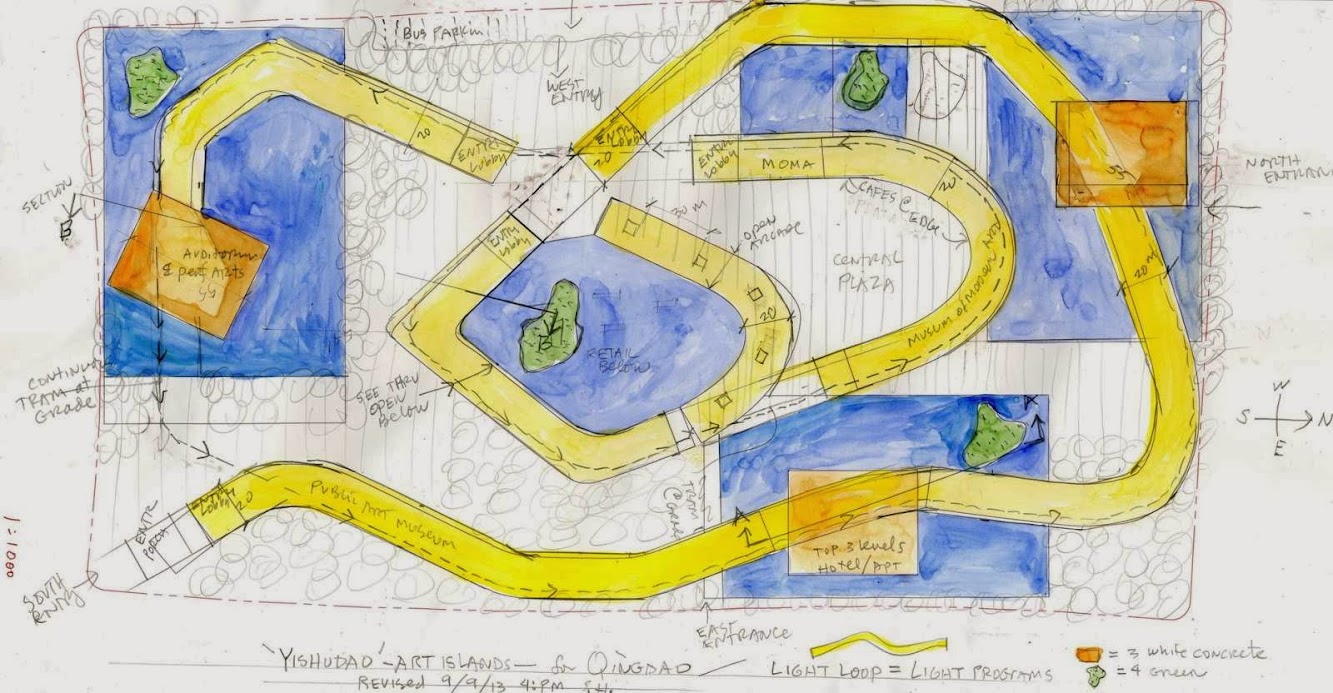 BUS PARKING
WEST
ENTRY
20
ENTRY
Lobby
ENTRY
Lobby
20
ENTRY
Lobby
MOMA
20
CAFES @
EDGE
55
NORTH
ENTRANCE
SECTION
B
AUDITORIUM
& perf ARTS
ENTRY
Lobby
30 M
OPEN
ARCADE
CENTRAL
PLAZA
MUSUM OF MODERN ART
20 M
20
B
RETAIL
Below
CONTINUOUS
TRAM AT
Grade
SEE THRU
OPEN
BELOW
W
S
N
E
ENTRY
Lobby
20
PUBLIC ART MUSEUM
ENTR
PORCH
TRAM
@ Grade
A
A
TOP 3 levels
Hotel/APT
1:1000
SOUTH
ENTRY
EAST
ENTRANCE
'YISHUDAO' - ART ISLANDS - for QINGDAO
REVISED 9/9/13 4:PM S.H.
LIGHT LOOP = LIGHT PROGRAMS
= 3 white concrete
= 4 Green